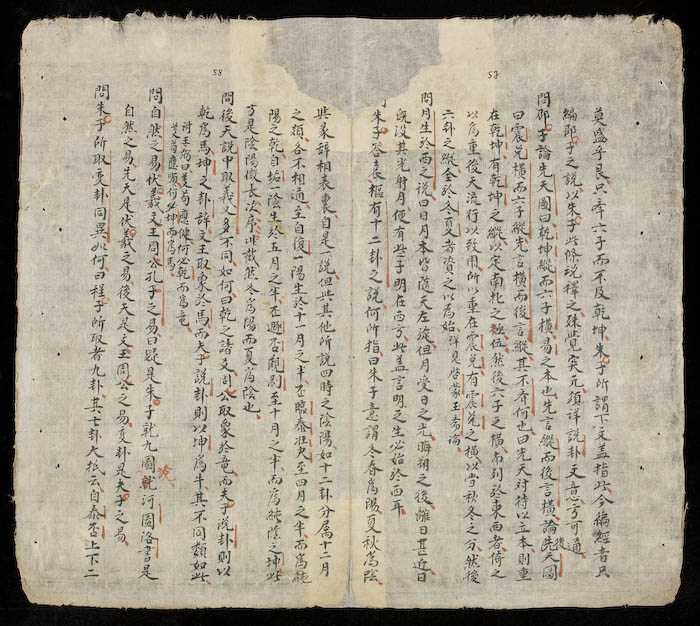 莫盛乎艮只牽六子而不及乾坤朱子所謂下文蓋指此今編經者只
編邵子之說以朱子此條說釋之殊覺突兀須詳說卦文意方可通
問邵子論先天圖曰乾坤縱而六子橫易之本也先言縱而後言橫論後天圖
曰震兌橫而六子縱先言橫而後言縱其不同者何也曰先天對待以立本則重
在乾坤有乾坤之縱以定南北之極位然後六子之橫布列於東西者倚之
以為重後天流行以致用所以重在震兌有震兌之橫以當秋冬之分然後
六卦之縱全於冬夏者資之以為始詳見啓蒙玉齋論
問月生於西之說曰日月本皆隨天左旋但月受日之光晦朔之後離日甚近日
纔沒其光射月便有些子明在西方此蓋言明之生必始於西耳
朱子答袁樞有十二卦之說何所指曰朱子意謂冬春為陽夏秋為陰
與彖辭相表裏自是一說但與其他所說四時之陰陽如十二卦分屬十二月
之類各不相通至自復一陽生於十一月之半至臨泰壯夬至四月之半而為純
陽之乾自垢一陰生於五月之半至遯否觀剝至十月之半而為純陰之坤此
方是陰陽微長次序非截然冬為陽而夏為陰也
問後天說中取義又多不同如何曰乾之諸爻周公取象於竜而夫子說卦則以
乾為馬坤之卦辞文王取象於馬而夫子說卦則以坤為牛其不同類如此
対王弼曰爻苟應健何必乾而為竜
爻苟應順何必坤而為馬
問自然之易伏羲文王周公孔子之易曰疑是朱子就九圖説河圖洛書是
自然之易先天是伏羲之易後天是文王周公之易変卦是夫子之易
問朱子所取変卦同異如何曰程子所取者九卦其七卦大抵云自泰否上下二
58
58